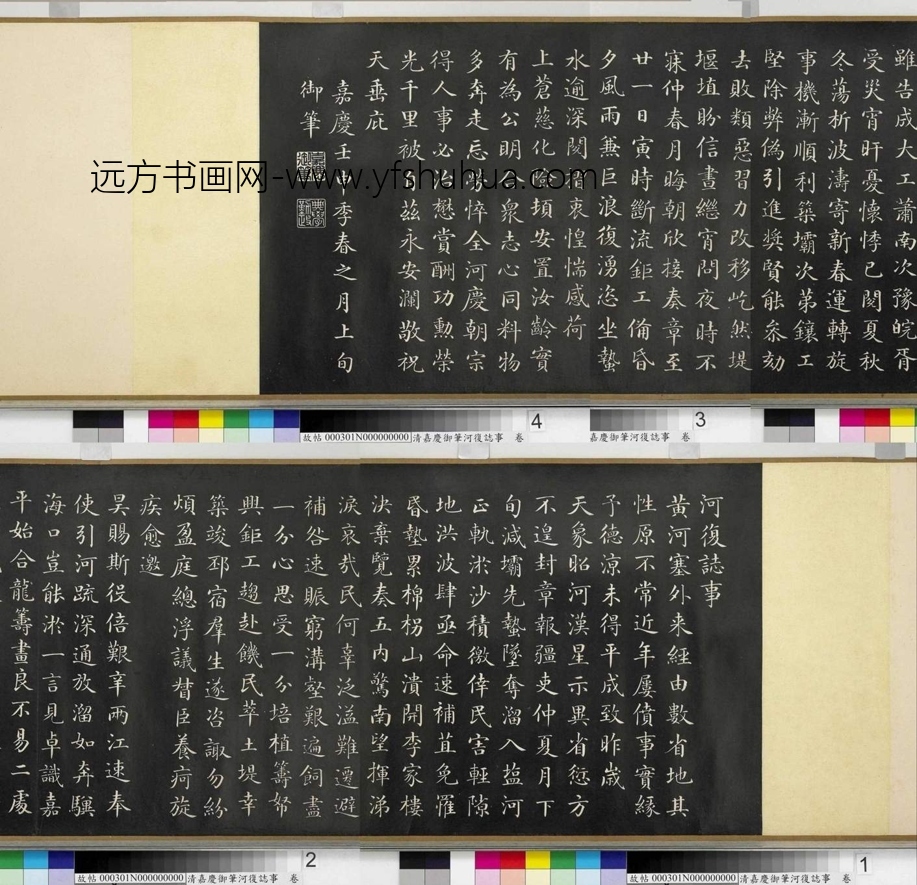 河復誌事
黃河塞外来經由數省地其
性原不常近年屢僨事實緣
予德涼未得平成致昨歲
天象昭河漢星示異省愆方
不遑封章報疆吏仲夏月下
旬減壩先蟄墜奪溜入塩河
正軌淤沙積微倖民害輕隙
地洪波肆亟命速補苴免罹
昏墊累棉柺山潰開李家樓
決棄覽奏五内驚南望揮涕
淚哀哉民何辜泛溢難遷避
補咎速賑窮溝壑艱遍飼盡
一分心思受一分培植籌帑
興鉅工趨赴饑民萃土堤幸
築竣邳宿羣生遂咨諏勿紛
煩盈庭總浮議督臣養疴旋
疾愈邀
昊賜斯役倍艱辛兩江速奉
使引河疏深通放溜如奔驥
海口豈能淤一言見卓識嘉
平始合龍籌畫良不易二處
雖告成大工蕭南次豫皖胥
受災宵旰憂懷悸已閱夏秋
冬蕩析波濤寄新春運轉旋
事機漸順利築壩次第鑲工
堅除弊偽引進獎賢能叅劾
去敗類惡習力改移屹然堤
堰埴盼信晝繼宵問夜時不
寐仲春月晦朝欣接奏章至
廿一日寅時斷流鉅工備昏
夕風雨兼巨浪復湧恣坐蟄
水逾深閱衷惶惴感荷
上蒼慈化險頃安置汝齡實
有為公明衆志心同料物
多奔走忘悴全河慶朝宗
得人事必治懋賞酬功勳榮
光千里被自茲永安瀾敬祝
天垂庇
嘉慶壬申季春之月上旬
御筆
远方书画网-www.yfshuhua.com
4
3
故帖 000301N000000000 清嘉慶御筆河復誌事 卷
清嘉慶御筆河復誌事 卷
2
1
故帖 000301N000000000 清嘉慶御筆河復誌事 卷
故帖 000301N000000000 清嘉慶御筆河復誌事 卷